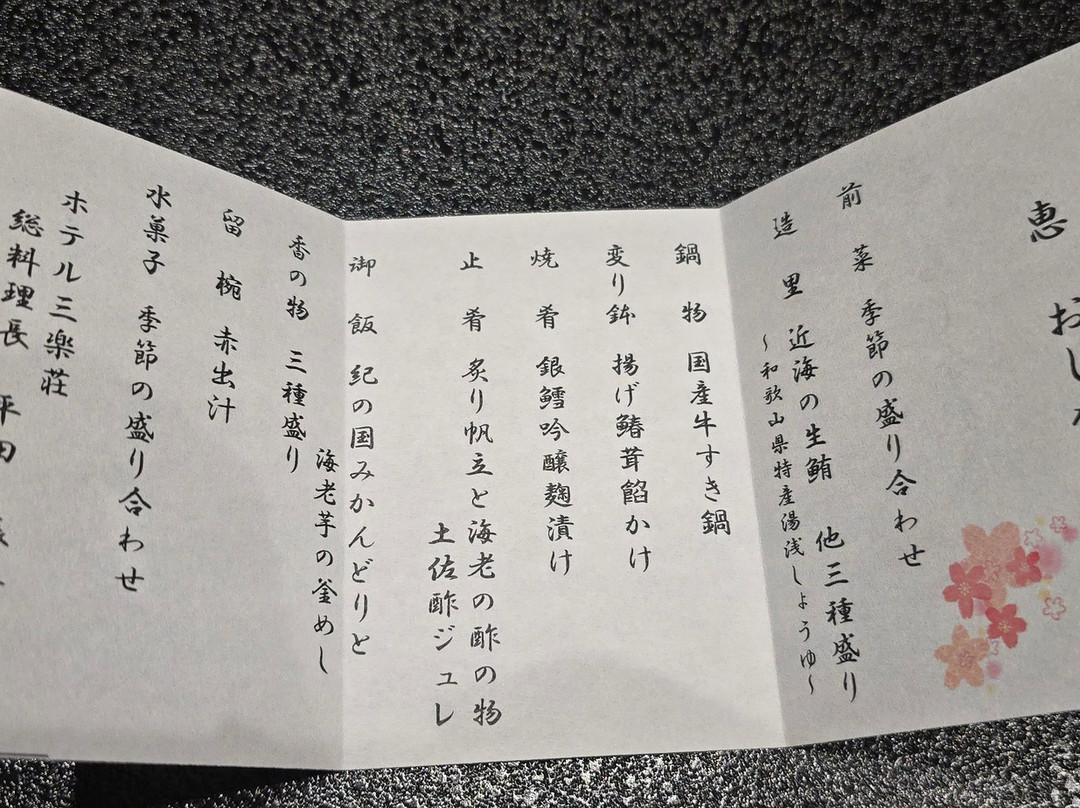 恵 おし
前菜 季節の盛り合わせ
造里 近海の生鮪 他三種盛り
~和歌山県特産湯浅しょうゆ~
鍋物 国産牛すき鍋
変り鉢 揚げ鰆茸餡かけ
焼肴 銀鱈吟醸麹漬け
止肴 炙り帆立と海老の酢の物
土佐酢ジュレ
御飯 紀の国みかんどりと
海老芋の釜めし
香の物 三種盛り
留椀 赤出汁
水菓子 季節の盛り合わせ
ホテル三楽荘
総料理長 平田